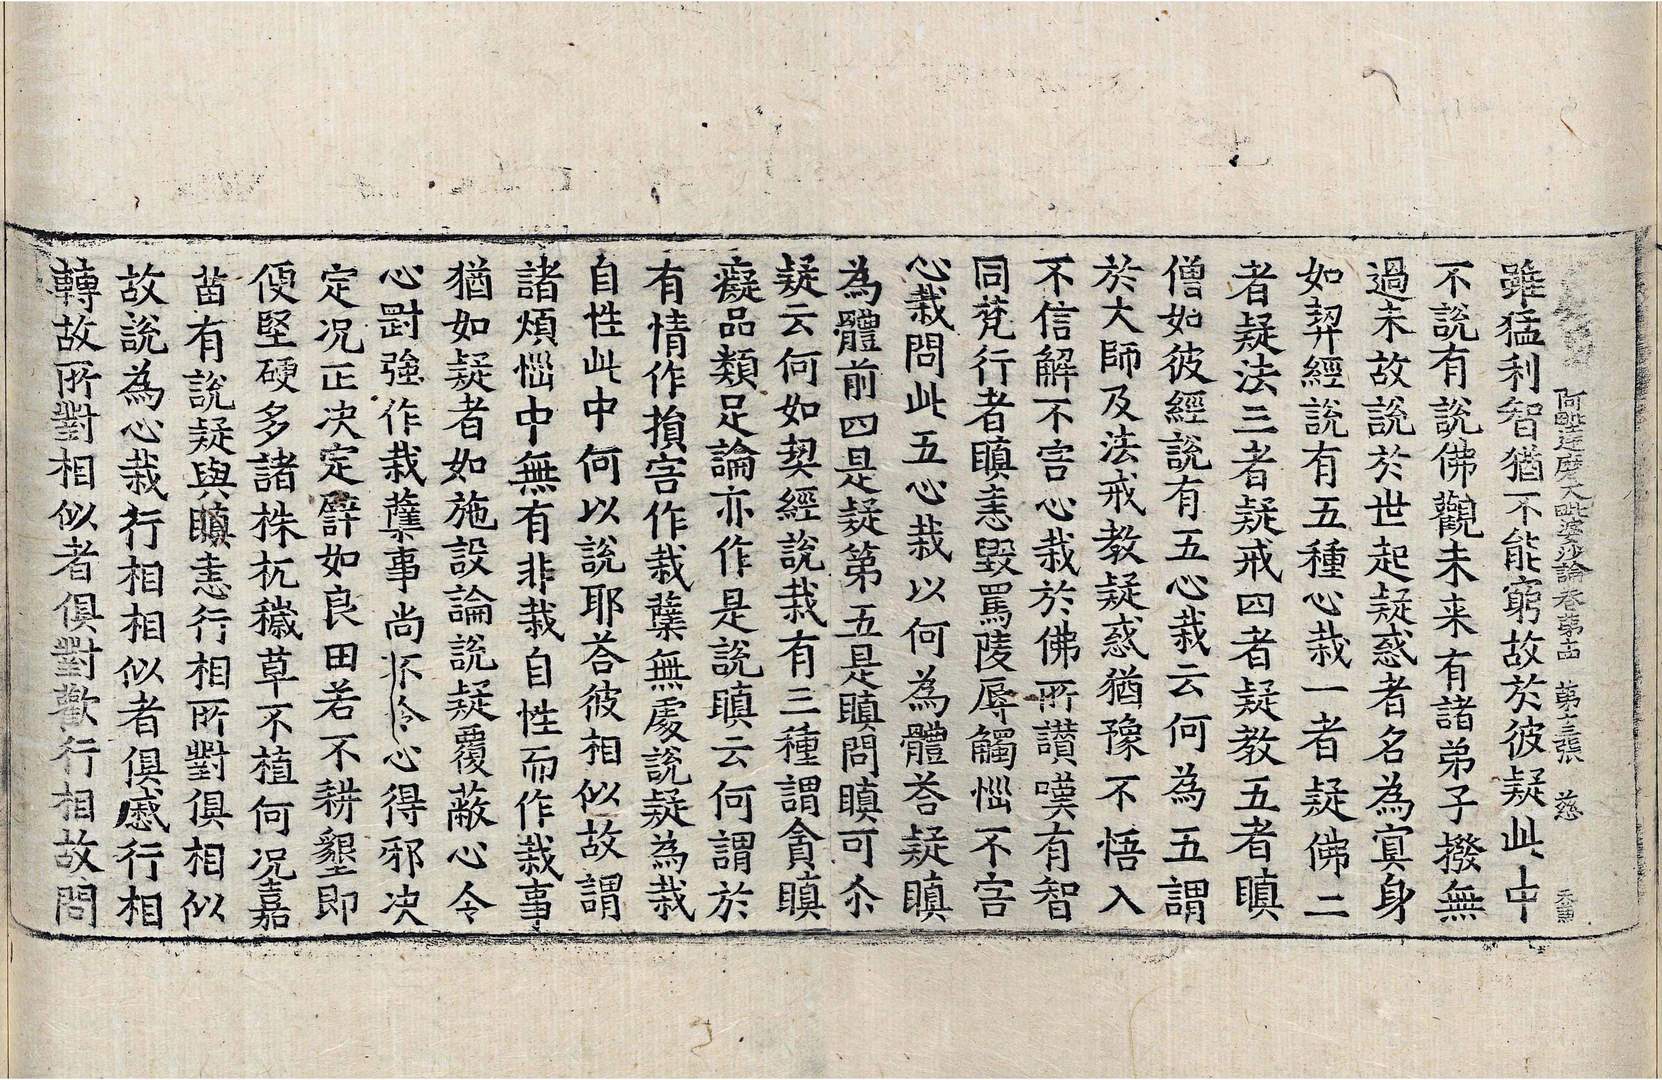 阿毗達磨大毗婆沙論卷第十四　第十三張　慈
雖猛利智猶不能窮故於彼疑此中
不說有說佛觀未来有諸弟子撥無
過未故說於世起疑惑者名為寞身
如契經說有五種心栽一者疑佛二
者疑法三者疑戒四者疑教五者瞋
僧如彼經說有五心栽云何為五謂
於大師及法戒教疑惑猶豫不悟入
不信解不害心栽於佛所讃嘆有智
同梵行者瞋恚毀罵陵辱觸惱不害
心栽問此五心栽以何為體荅疑瞋
為體前四是疑第五是瞋問瞋可尒
疑云何如契經說栽有三種謂貪瞋
癡品類足論亦作是說瞋云何謂於
有情作損害作栽蘖無處說疑為栽
自性此中何以說耶荅彼相似故謂
諸煩惱中無有非栽自性而作栽事
猶如疑者如施設論說疑覆蔽心令
心剛強作栽蘖事尚不令心得邪决
定况正决定辟如良田若不耕墾即
便堅硬多諸株杌穢草不植何况嘉
苗有說疑與瞋恚行相所對俱相似
故說為心栽行相相似者俱慼行相
轉故所對相似者俱對歡行相故問